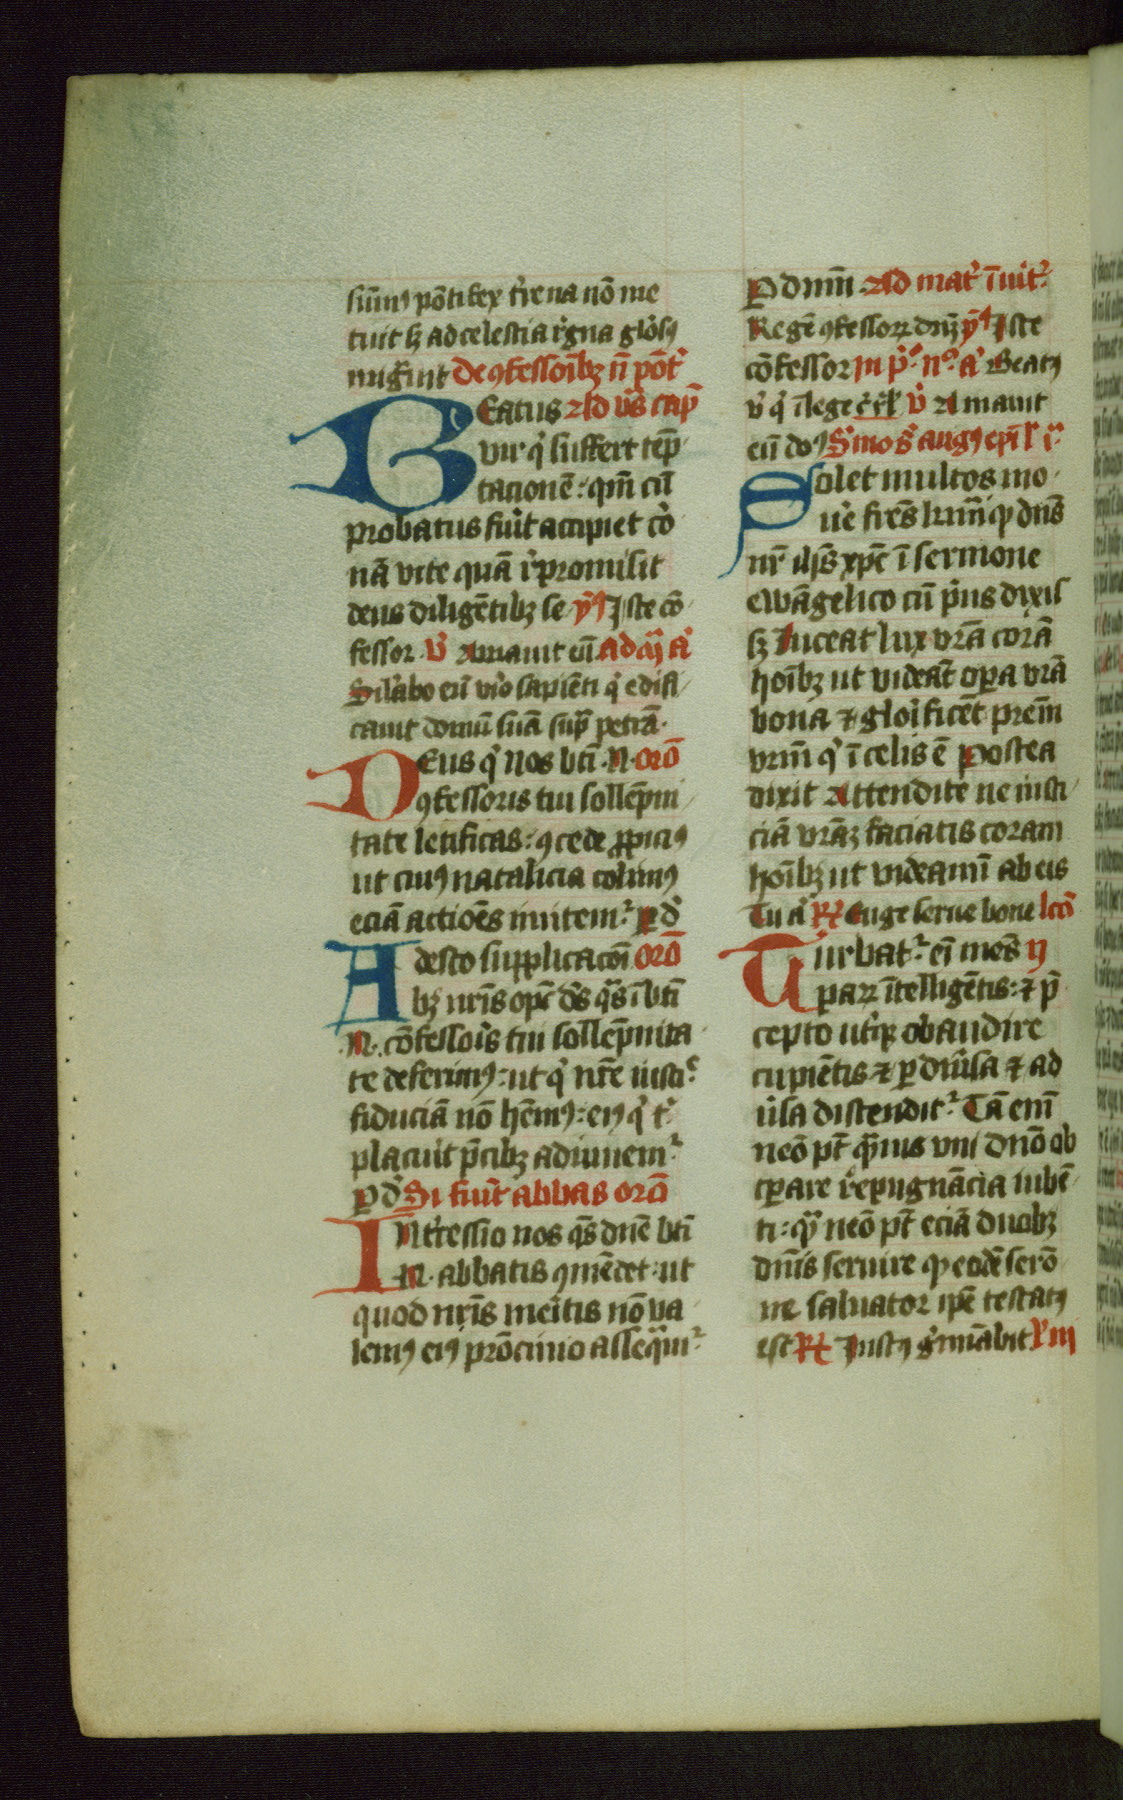 sūmꝰ pōtifex t̓rena nō me
tuit sꝫ ad celestia r̓gna glo̓sꝰ
mig̓uit De ꝯfessoībꝫ nō pōt̓
Beatus Ad vs̄ cap̄
vir q̓ suffert tēp
tacionē: qm̄ cū
probatus fu̓it accipiet co̓
nā vite quā r̓promisit
deus diligētibꝫ se ym̓ Iste cō
fessor v̓ Amauit eū ad m̄ a̓
Sil̓abo eū vi̓o sapiēti q̓ edifi
cauit domū suā sup̄ petrā.
Deus q̓ nos bti ·N· Orō
ꝯfessoris tui sollēpni
tate letificas: ꝯcede ꝓpicius
ut cuiꝰ natalicia colimꝰ
eciā actiōes imitemᷣ ꝑ d̓
Adesto supplicacōi Orō
bꝫ nr̄is opc̄ ds̄ qs̄ ī bti
·N· cōfesso̓is tui sollēpnita
te deferimꝰ: ut q̓ nr̄e iusti ͨ
fiduciā nō hēmꝰ: eiꝰ q̓ t̓
placuit p̄cibꝫ adiuuemᷣ
ꝑ d̓ Si fu̓it abbas orō
Int̓cessio nos qs̄ dn̄e bti
·N· abbatis ꝯmēdet: ut
quod nr̄is me̓itis nō va
lemꝰ eiꝰ prōcinio asseq̄mᷣ
P dnm̄ Ad mat̓ īuit̓
Regē ꝯfessoꝝ dnꝫ ym̓ Iste
cōfessor in p̓ ͦ n ͦ a̓ Beatꝰ
v̓ q̓ ī lege v̓ Amauit
eū doꝰ S̓mo s̓ augꝰ ep̄i l̓ i ͣ
Solet multos mo
ue̓ frēs kr̄mi ꝙ dn̄s
nr̄ ih̄s xp̄c ī sermone
ewāgelico cū p̓us dixis
sꝫ luceat lux vrā corā
hoībꝫ ut videāt oꝑa vrā
bona ⁊ glo̓ificēt prēm
vrm̄ q̓ ī celis ē Postea
dixit Attendite ne iusti
ciā vrāꝫ faciatis coram
hoībꝫ ut videamī ab eis
Tu a̓ R̸ Euge serue bone lcō
Turbatᷣ ei mēs ij
paꝝ ītelligētis: ⁊ p̄
cepto ut̓iꝗ obaudire
cupiētis ⁊ ꝑ diu̓sa ⁊ ad
u̓sa distenditᷣ Tā enī
neō pt̄ qm̄uis vni dnō ob
tꝑare r̓pugnācia iubē
ti: q̄ neō pt̄ eciā duobꝫ
dn̄is seruire ꝙ eodē serō
ne saluator ipē testatꝰ
est R̸ Iustꝰ g̓minabit l̓ iij